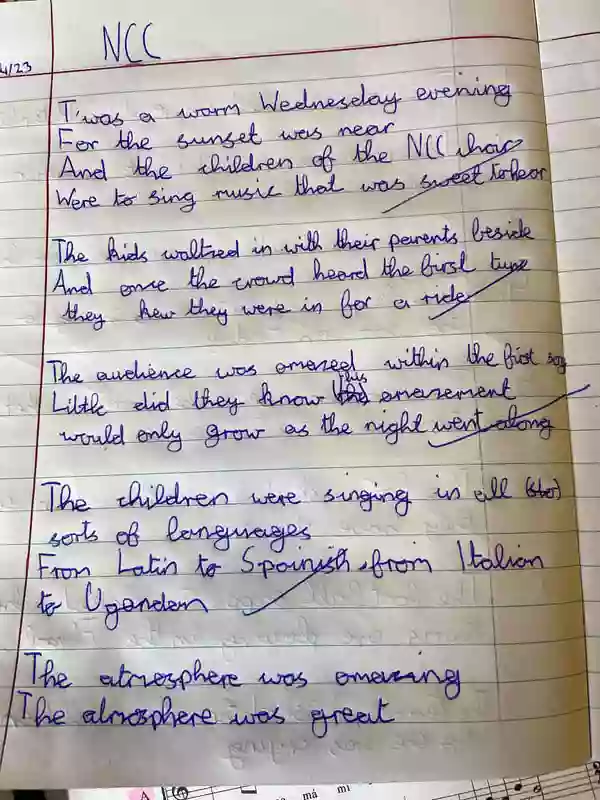 4/23
NCC
T'was a warm Wednesday evening
For the sunset was near
And the children of the NCC choir
Were to sing music that was sweet to hear
The kids waltzed in with their parents beside
And once the crowd heard the first tune
they kew they were in for a ride
The audience was amazed within the first song
Little did they know this amazement
would only grow as the night went along
The children were singing in all
sorts of languages
From Latin to Spainish, from Italian
to Ugandan
The atmosphere was amazing
The atmosphere was great
A
má mi